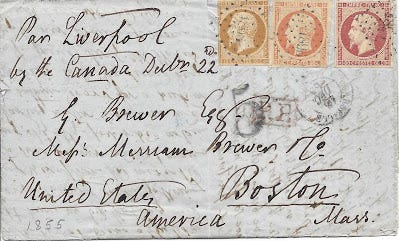 Par Liverpool
by the Canada Decbr 22
G. Brewer Esqr
Messrs Merriam Brewer & Co
Boston
United States
America
Mass.
1855
EMPIRE FRANC